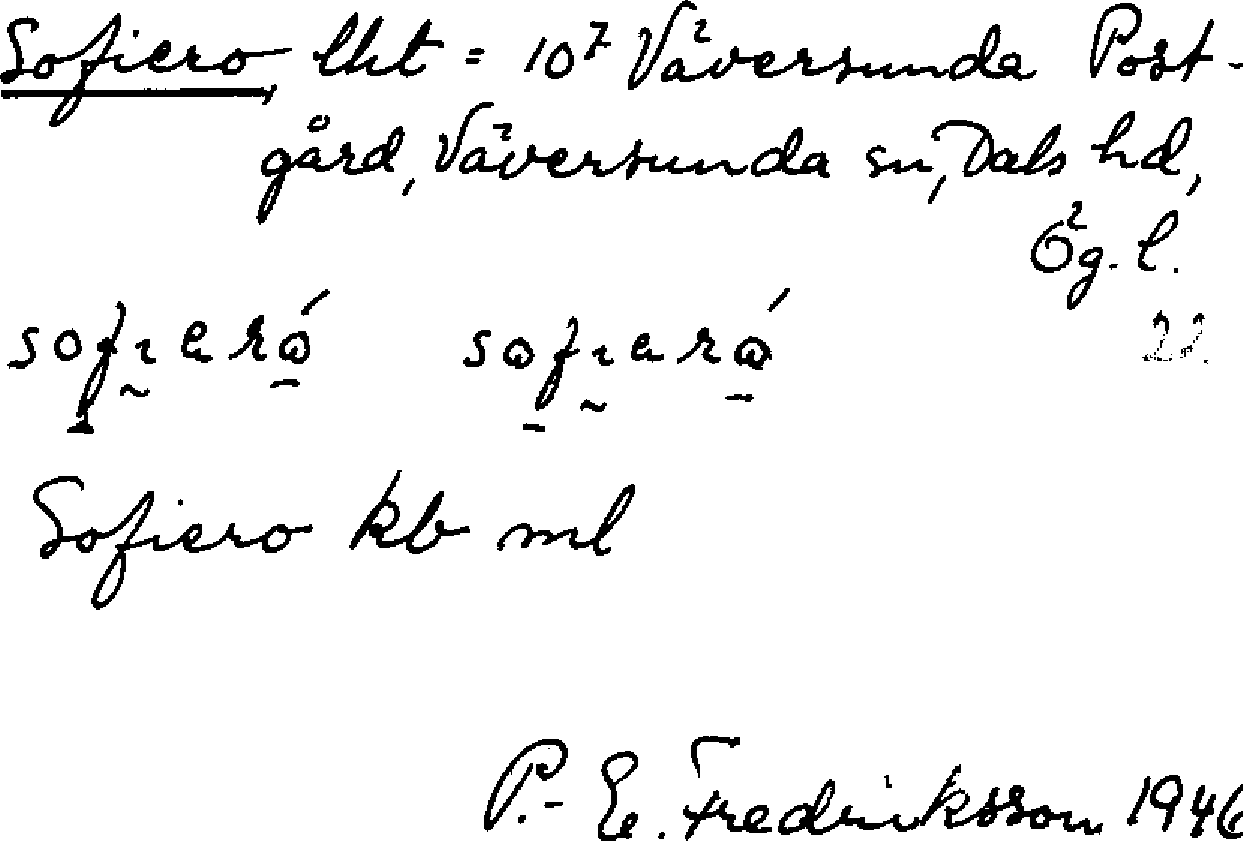 Sofiero, lht = 10⁷ Väversunda Post-
gård, Väversunda sn, Dals hd,
Ög. l.
22.
Sofiero kb ml
P.-E. Fredriksson 1946